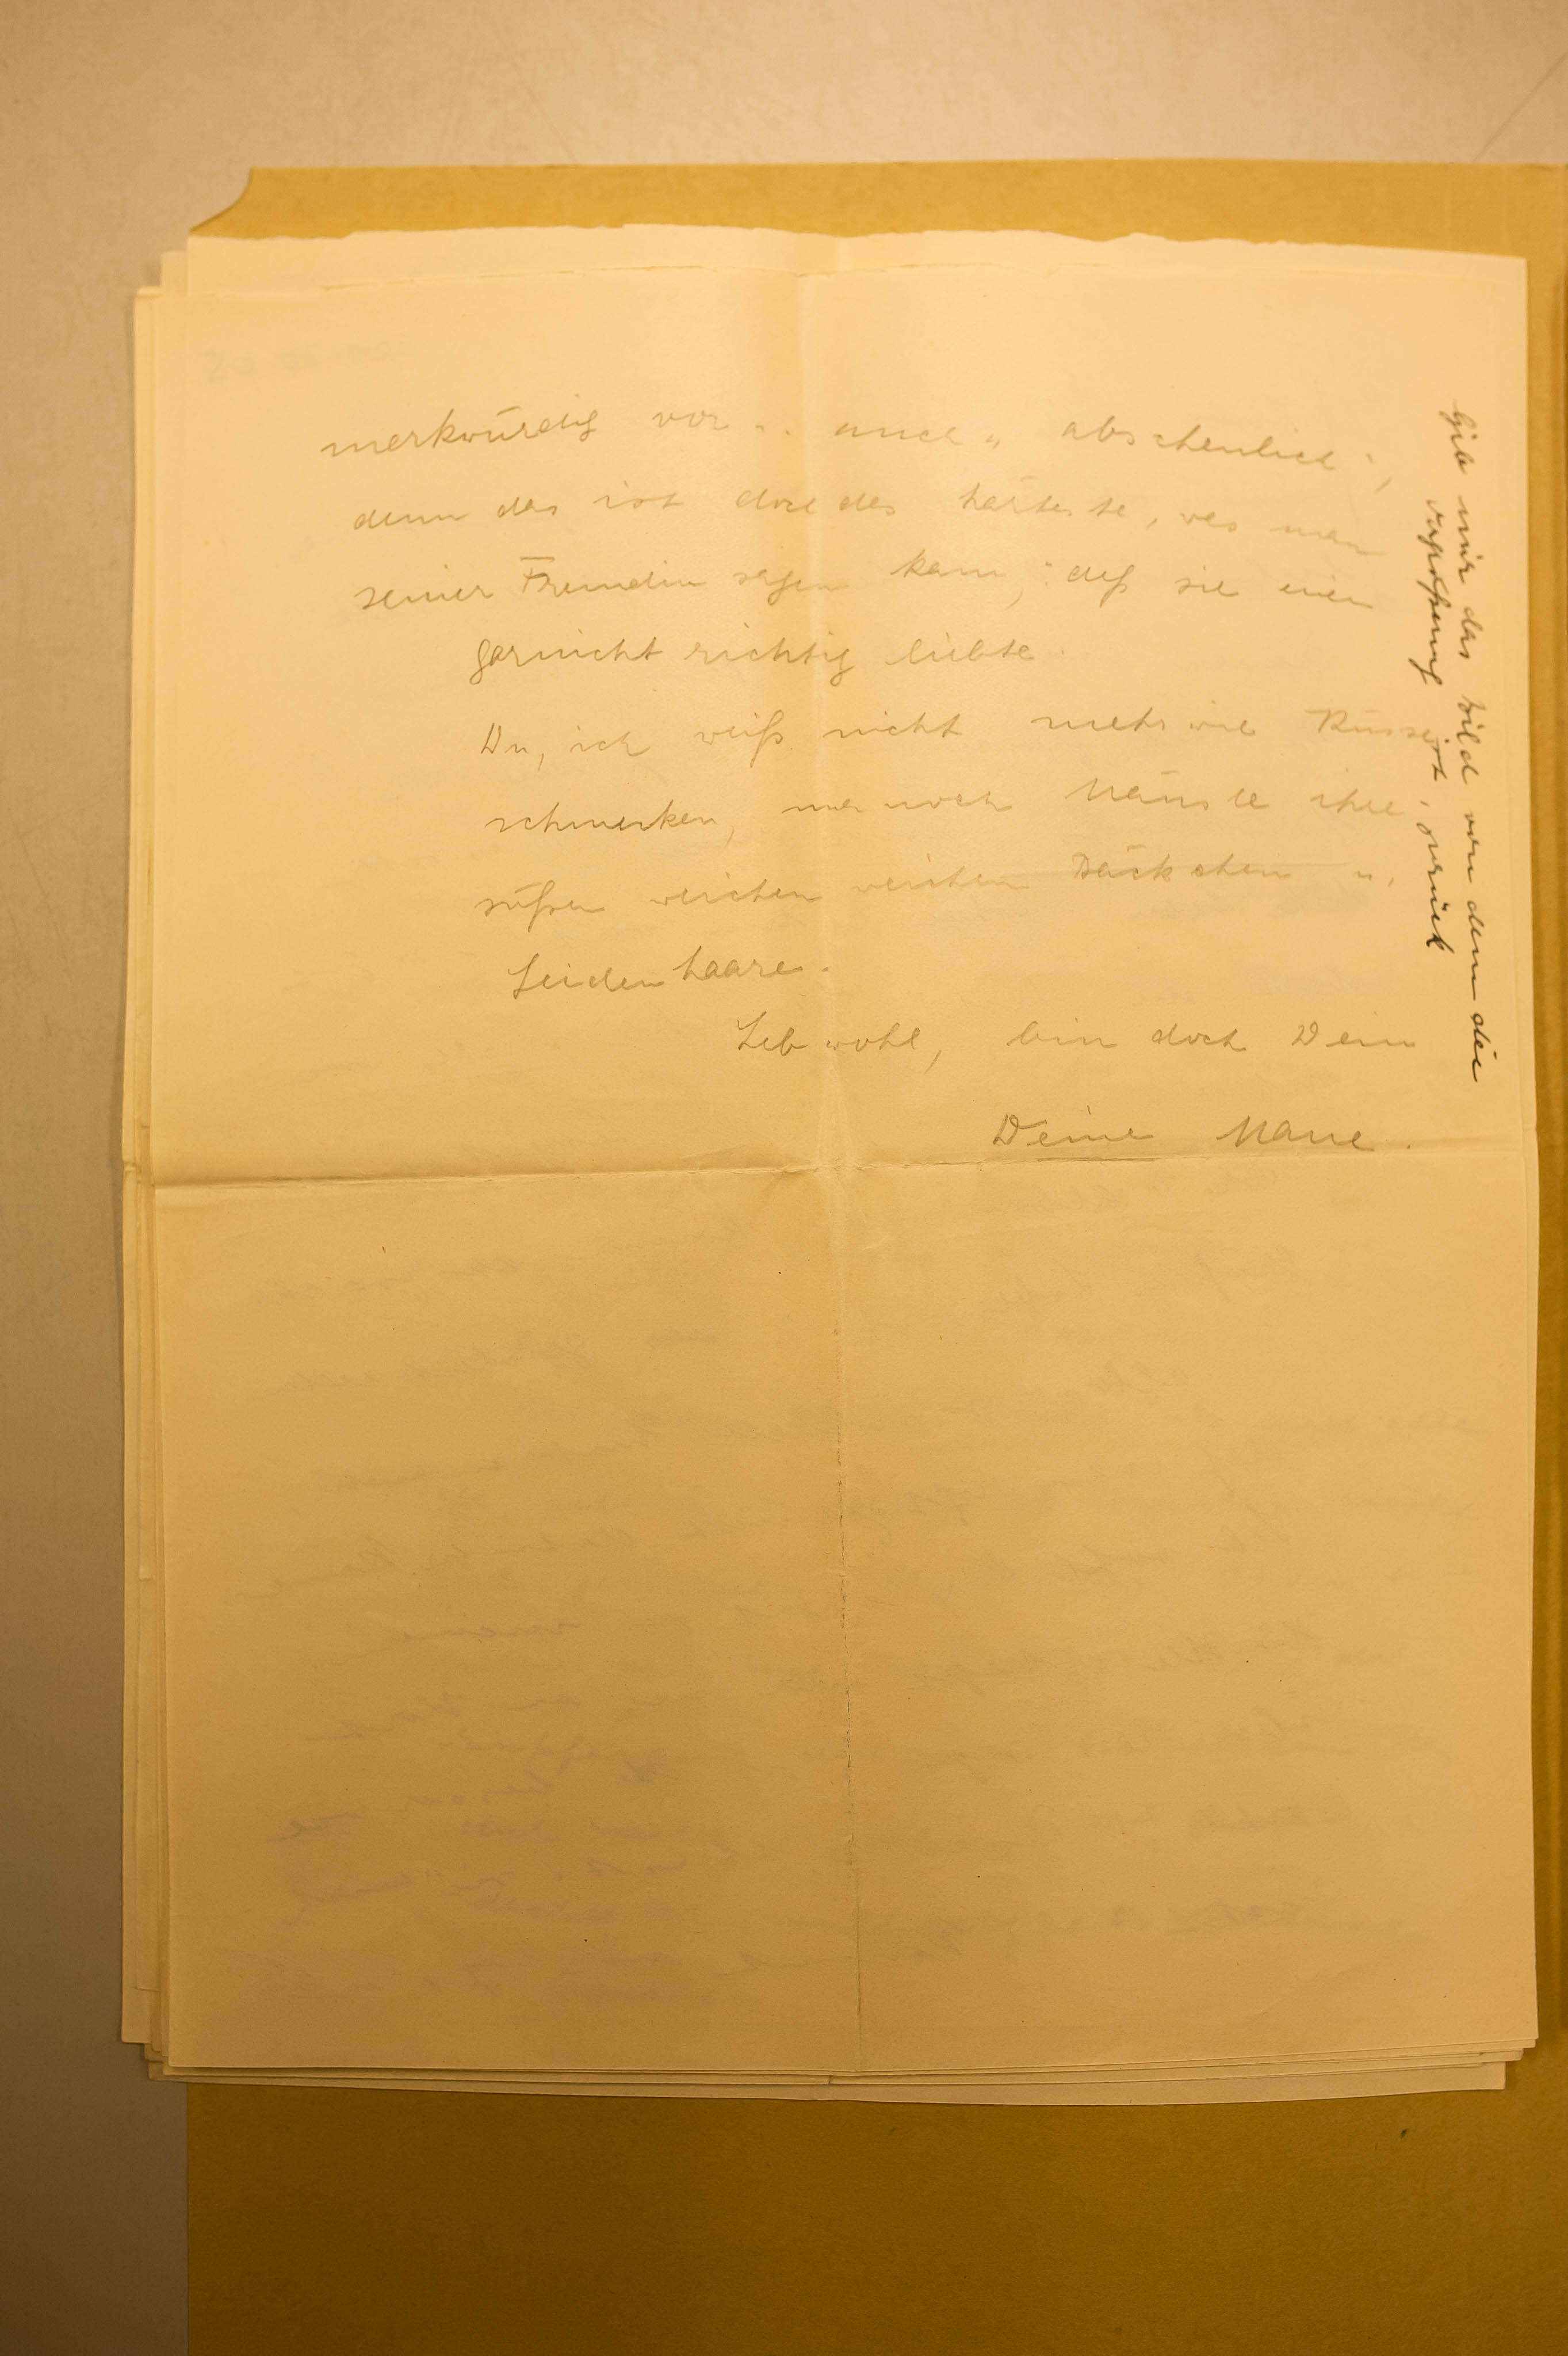 merkwürdig vor .. auch „abscheulich",
denn das ist doch das härteste, was man
seiner Freundin sagen kann, daß sie einen
garnicht richtig liebte.
Du, ich weiß nicht mehr wie Küsse
schmecken, nur noch ihre
süßen weichen weichen Bäckchen u.
Seidenhaare.
Leb wohl, bin doch Dein
Deine
Gib mir das Bild von dem die
ist, zurück